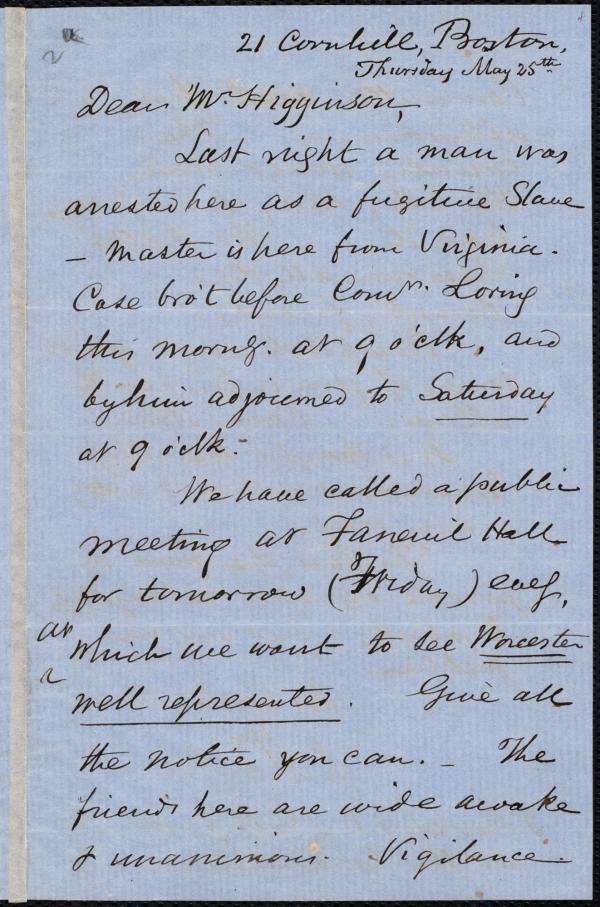 21 Cornhill, Boston,
Thursday May 25th
Dear Mr. Higginson,
Last night a man was
arrested here as a fugitive Slave
- master is here from Virginia.
Case bro't before Comr. Loring
this morng. at 9 o'clk, and
by him adjourned to Saturday
at 9 o'clk.-
We have called a public
meeting at Faneuil Hall
for tomorrow (Friday) eveg,
at which we want to see Worcester
well represented. Give all
the notice you can. - The
friends here are wide awake
& unanimous. Vigilance